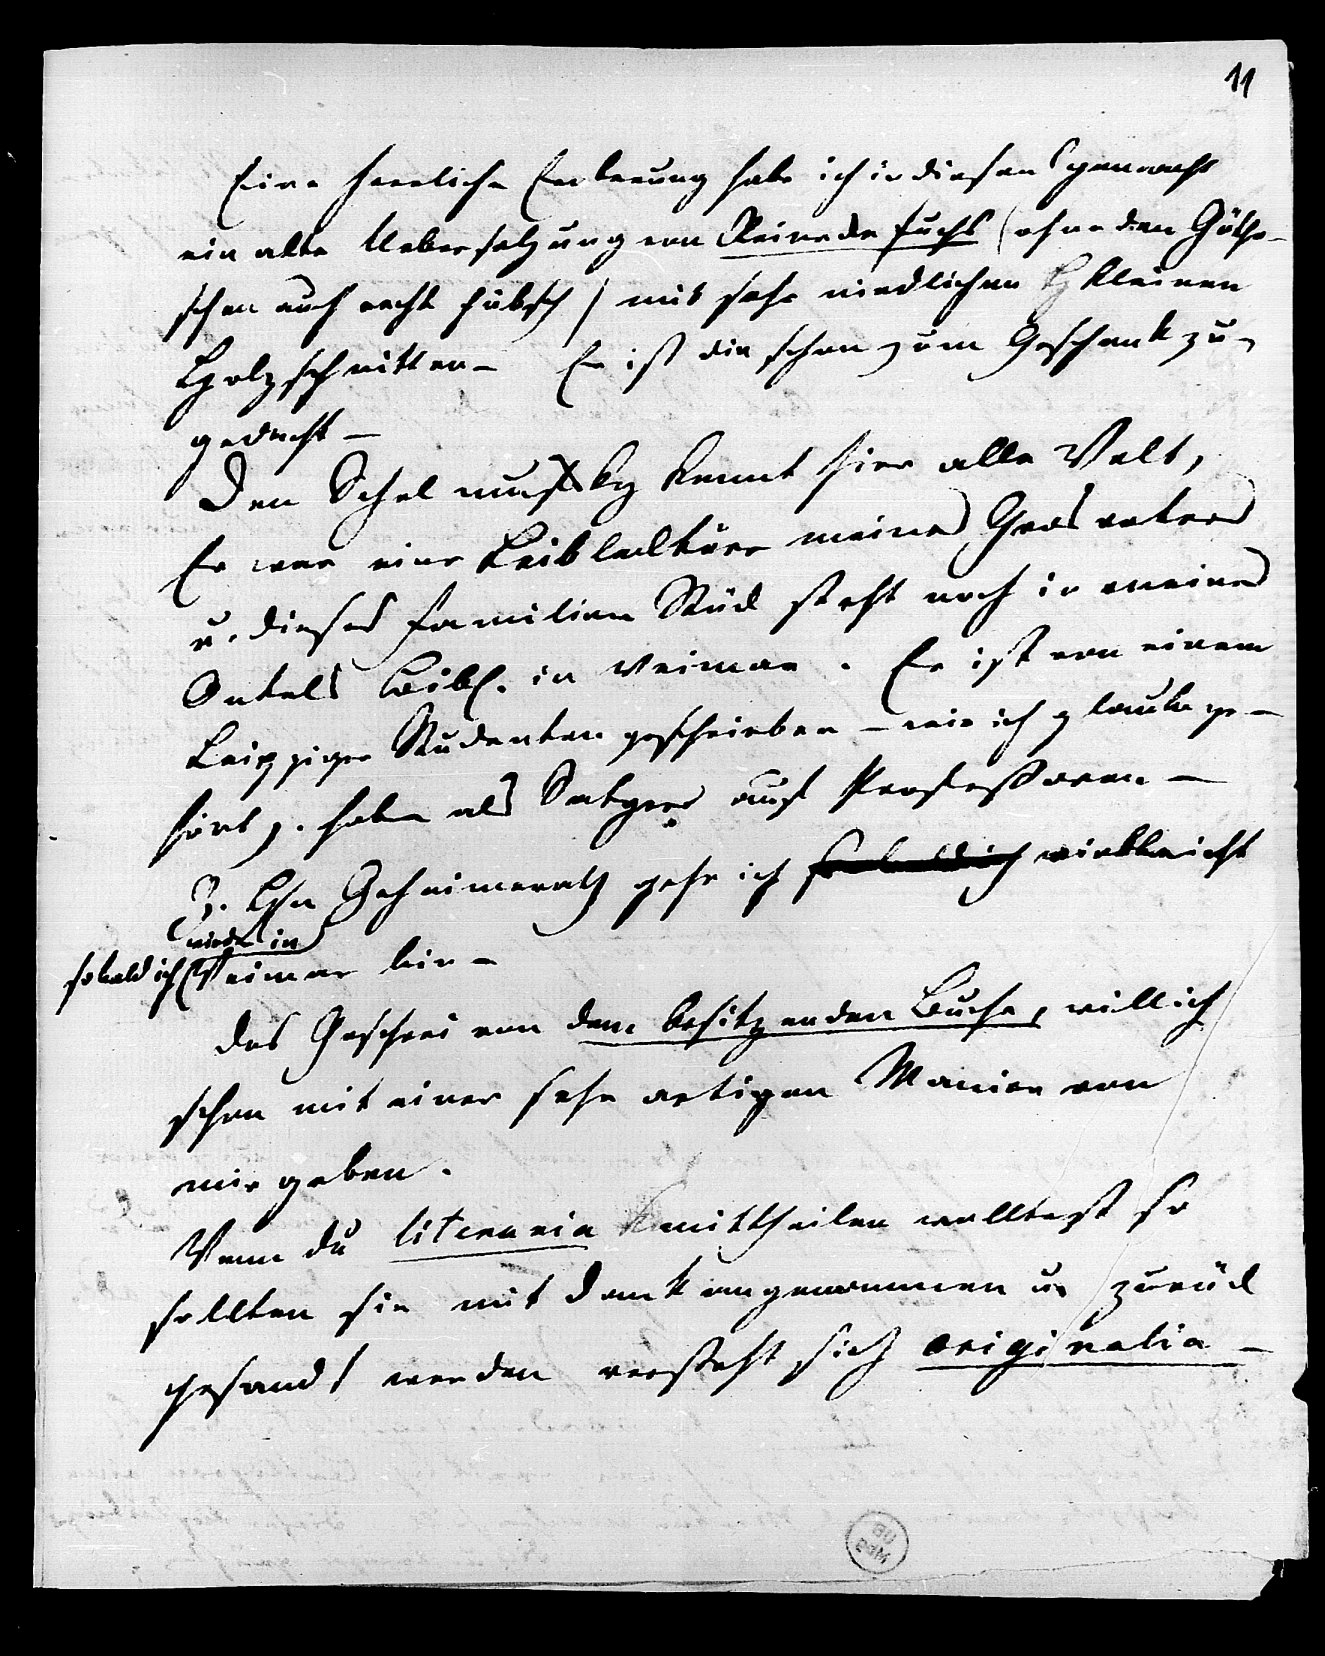 11
Eine herrliche Eroberung habe ich in diesen gemacht
ein alte Uebersetzung von Reinecke Fuchs (ohne den Göthe-
schen auch recht hübsch) mit sehr niedlichen kleinen
Holzschnitten – Er ist dir schon zum Geschenk zu-
gedacht –
Den Schelmufsky kennt hier alle Welt,
Er war eine Leiblecktüre meines Grosvaters
u. dieses Familien Stück steht noch in meines
Onkels Bibl. in Weimar. Er ist von einem
Leipziger Studenten geschrieben – wie ich glaube ge-
hört z. haben als Satyre auf Professoren –
Z. Hn Geheimerath gehe ich vielleicht
wieder in
sobald ich Weimar bin –
Das Geschrei von dem besitzenden Buche, will ich
schon mit einer sehr artigen Manier von
mir geben.
Wenn du literaria mittheilen wolltest so
sollten sie mit Dank angenommen u. zurück
gesandt werden versteht sich originalia –